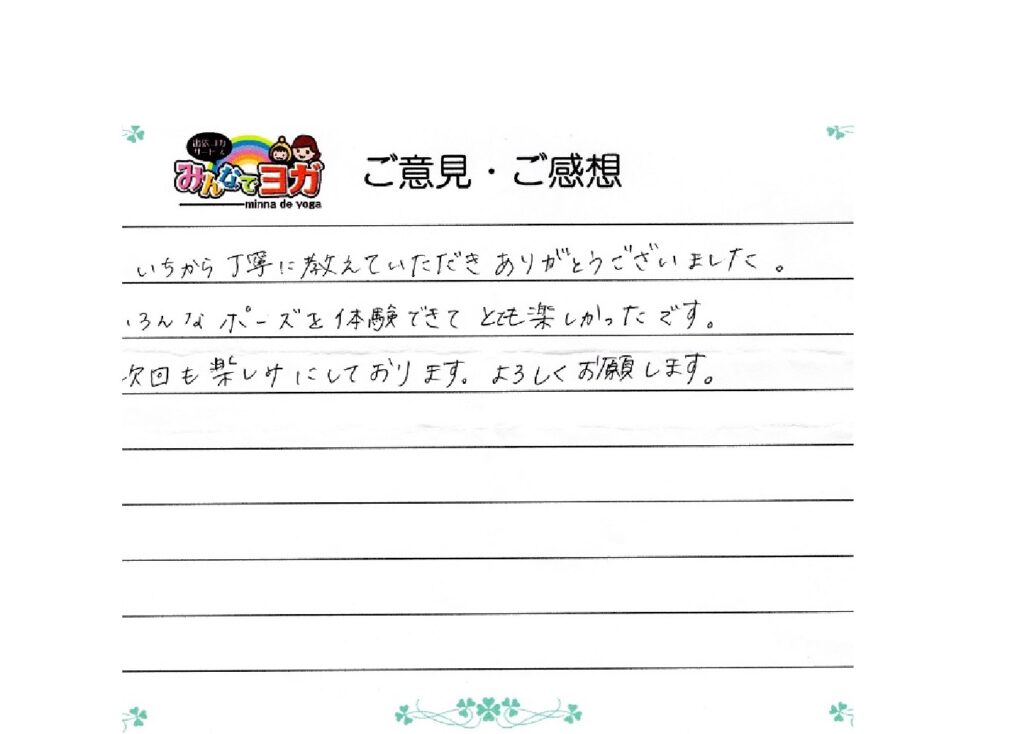 出張ヨガ
サービス
みんなでヨガ
minna de yoga
ご意見・ご感想
いちから丁寧に教えていただきありがとうございました。
いろんなポーズを体験できてとても楽しかったです。
次回も楽しみにしております。よろしくお願します。